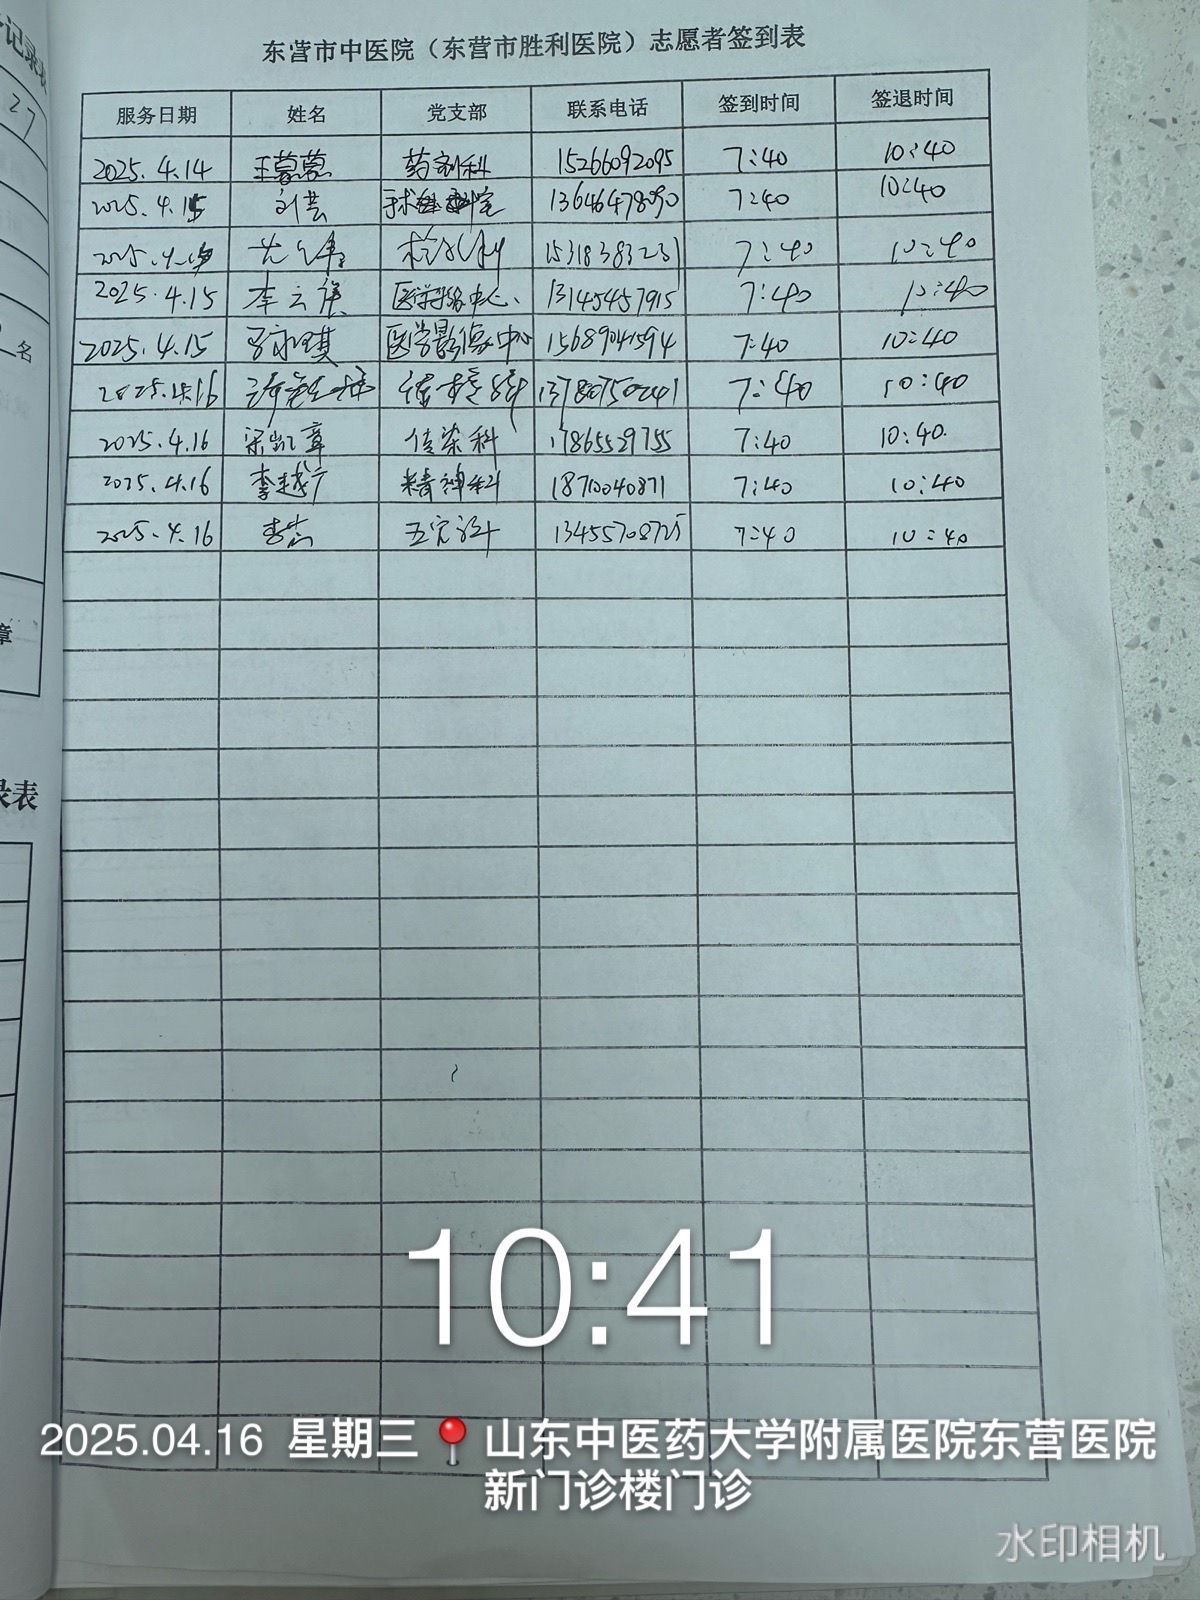 记录表
27
名
章
录表
东营市中医院（东营市胜利医院）志愿者签到表
服务日期 姓名 党支部 联系电话 签到时间 签退时间
2025.4.14 王蒙蒙 药剂科 15266092095 7:40 10:40
2025.4.15 刘芸 手术室 13646478090 7:40 10:40
2025.4.15 15318383231 7:40 10:40
2025.4.15 李云 医学影像中心 13145457915 7:40 10:40
2025.4.15 医学影像中心 15689041594 7:40 10:40
2025.4.16 13780750241 7:40 10:40
2025.4.16 梁凯章 传染科 17865529755 7:40 10:40
2025.4.16 李越 精神科 18710040871 7:40 10:40
2025.4.16 李 五官科 13455708725 7:40 10:40
10:41
2025.04.16 星期三 山东中医药大学附属医院东营医院
新门诊楼门诊
水印相机